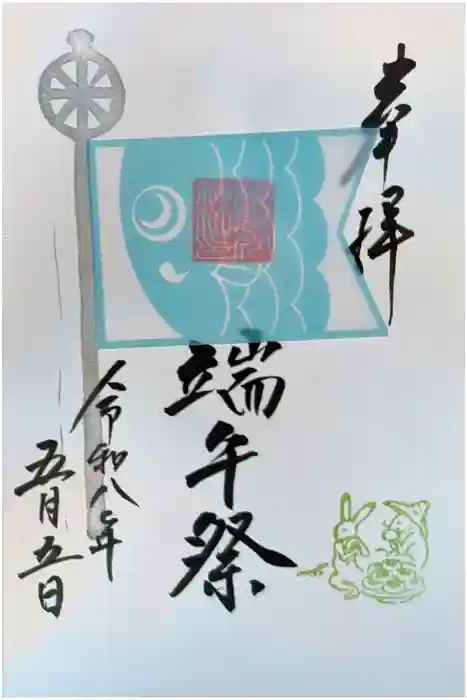 奉拝
端午祭
令和八年
五月五日